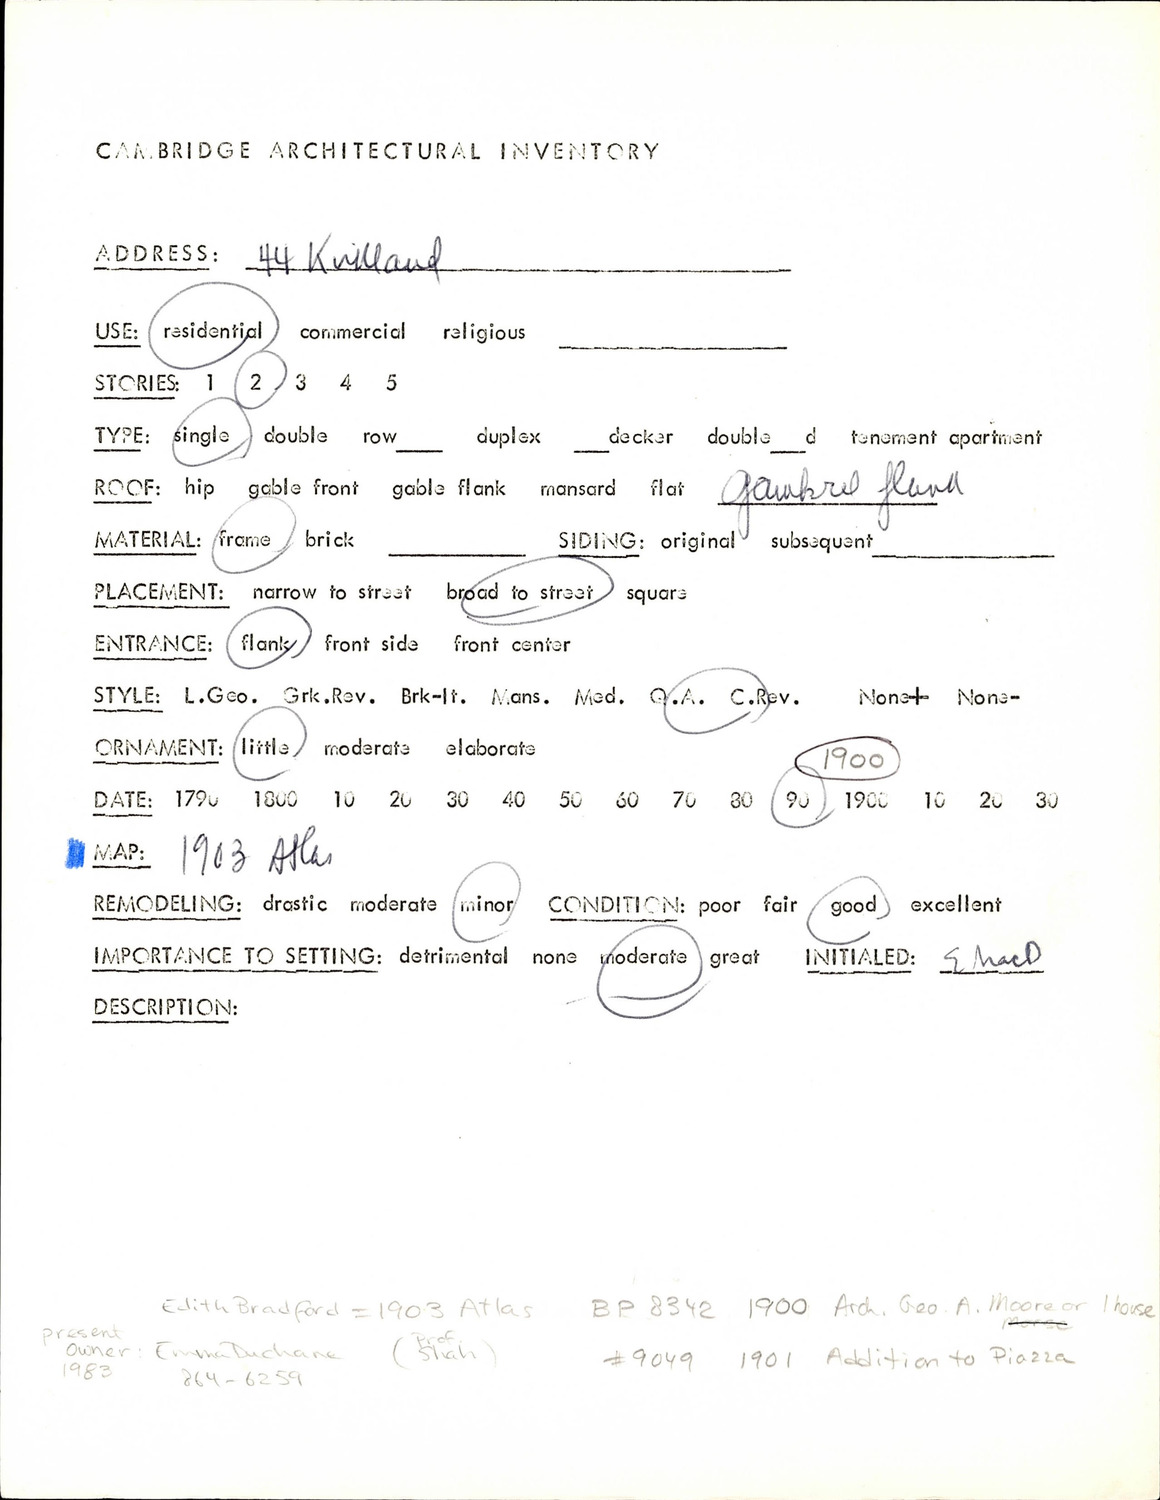 CAMBRIDGE ARCHITECTURAL INVENTORY
ADDRESS: 44
USE: residential commercial religious
STORIES: 1 2 3 4 5
TYPE: single double row___ duplex ___decker double___d tenement apartment
ROOF: hip gable front gable flank mansard flat
MATERIAL: frame brick ______ SIDING: original subsequent______
PLACEMENT: narrow to street broad to street square
ENTRANCE: flank front side front center
STYLE: L.Geo. Grk.Rev. Brk-It. Mans. Med. Q.A. C.Rev. None+ None-
ORNAMENT: little moderate elaborate
1900
DATE: 1790 1800 10 20 30 40 50 60 70 80 90 1900 10 20 30
MAP: 1903 Atlas
REMODELING: drastic moderate minor CONDITION: poor fair good excellent
IMPORTANCE TO SETTING: detrimental none moderate great INITIALED: E MacD
DESCRIPTION:
Edith Bradford = 1903 Atlas BP 8342 1900 Arch. Geo. A. Moore or 1 house
Morse
present
Owner: Emma Duchane (Prof. Shah) #9049 1901 Addition to Piazza
1983 864-6259